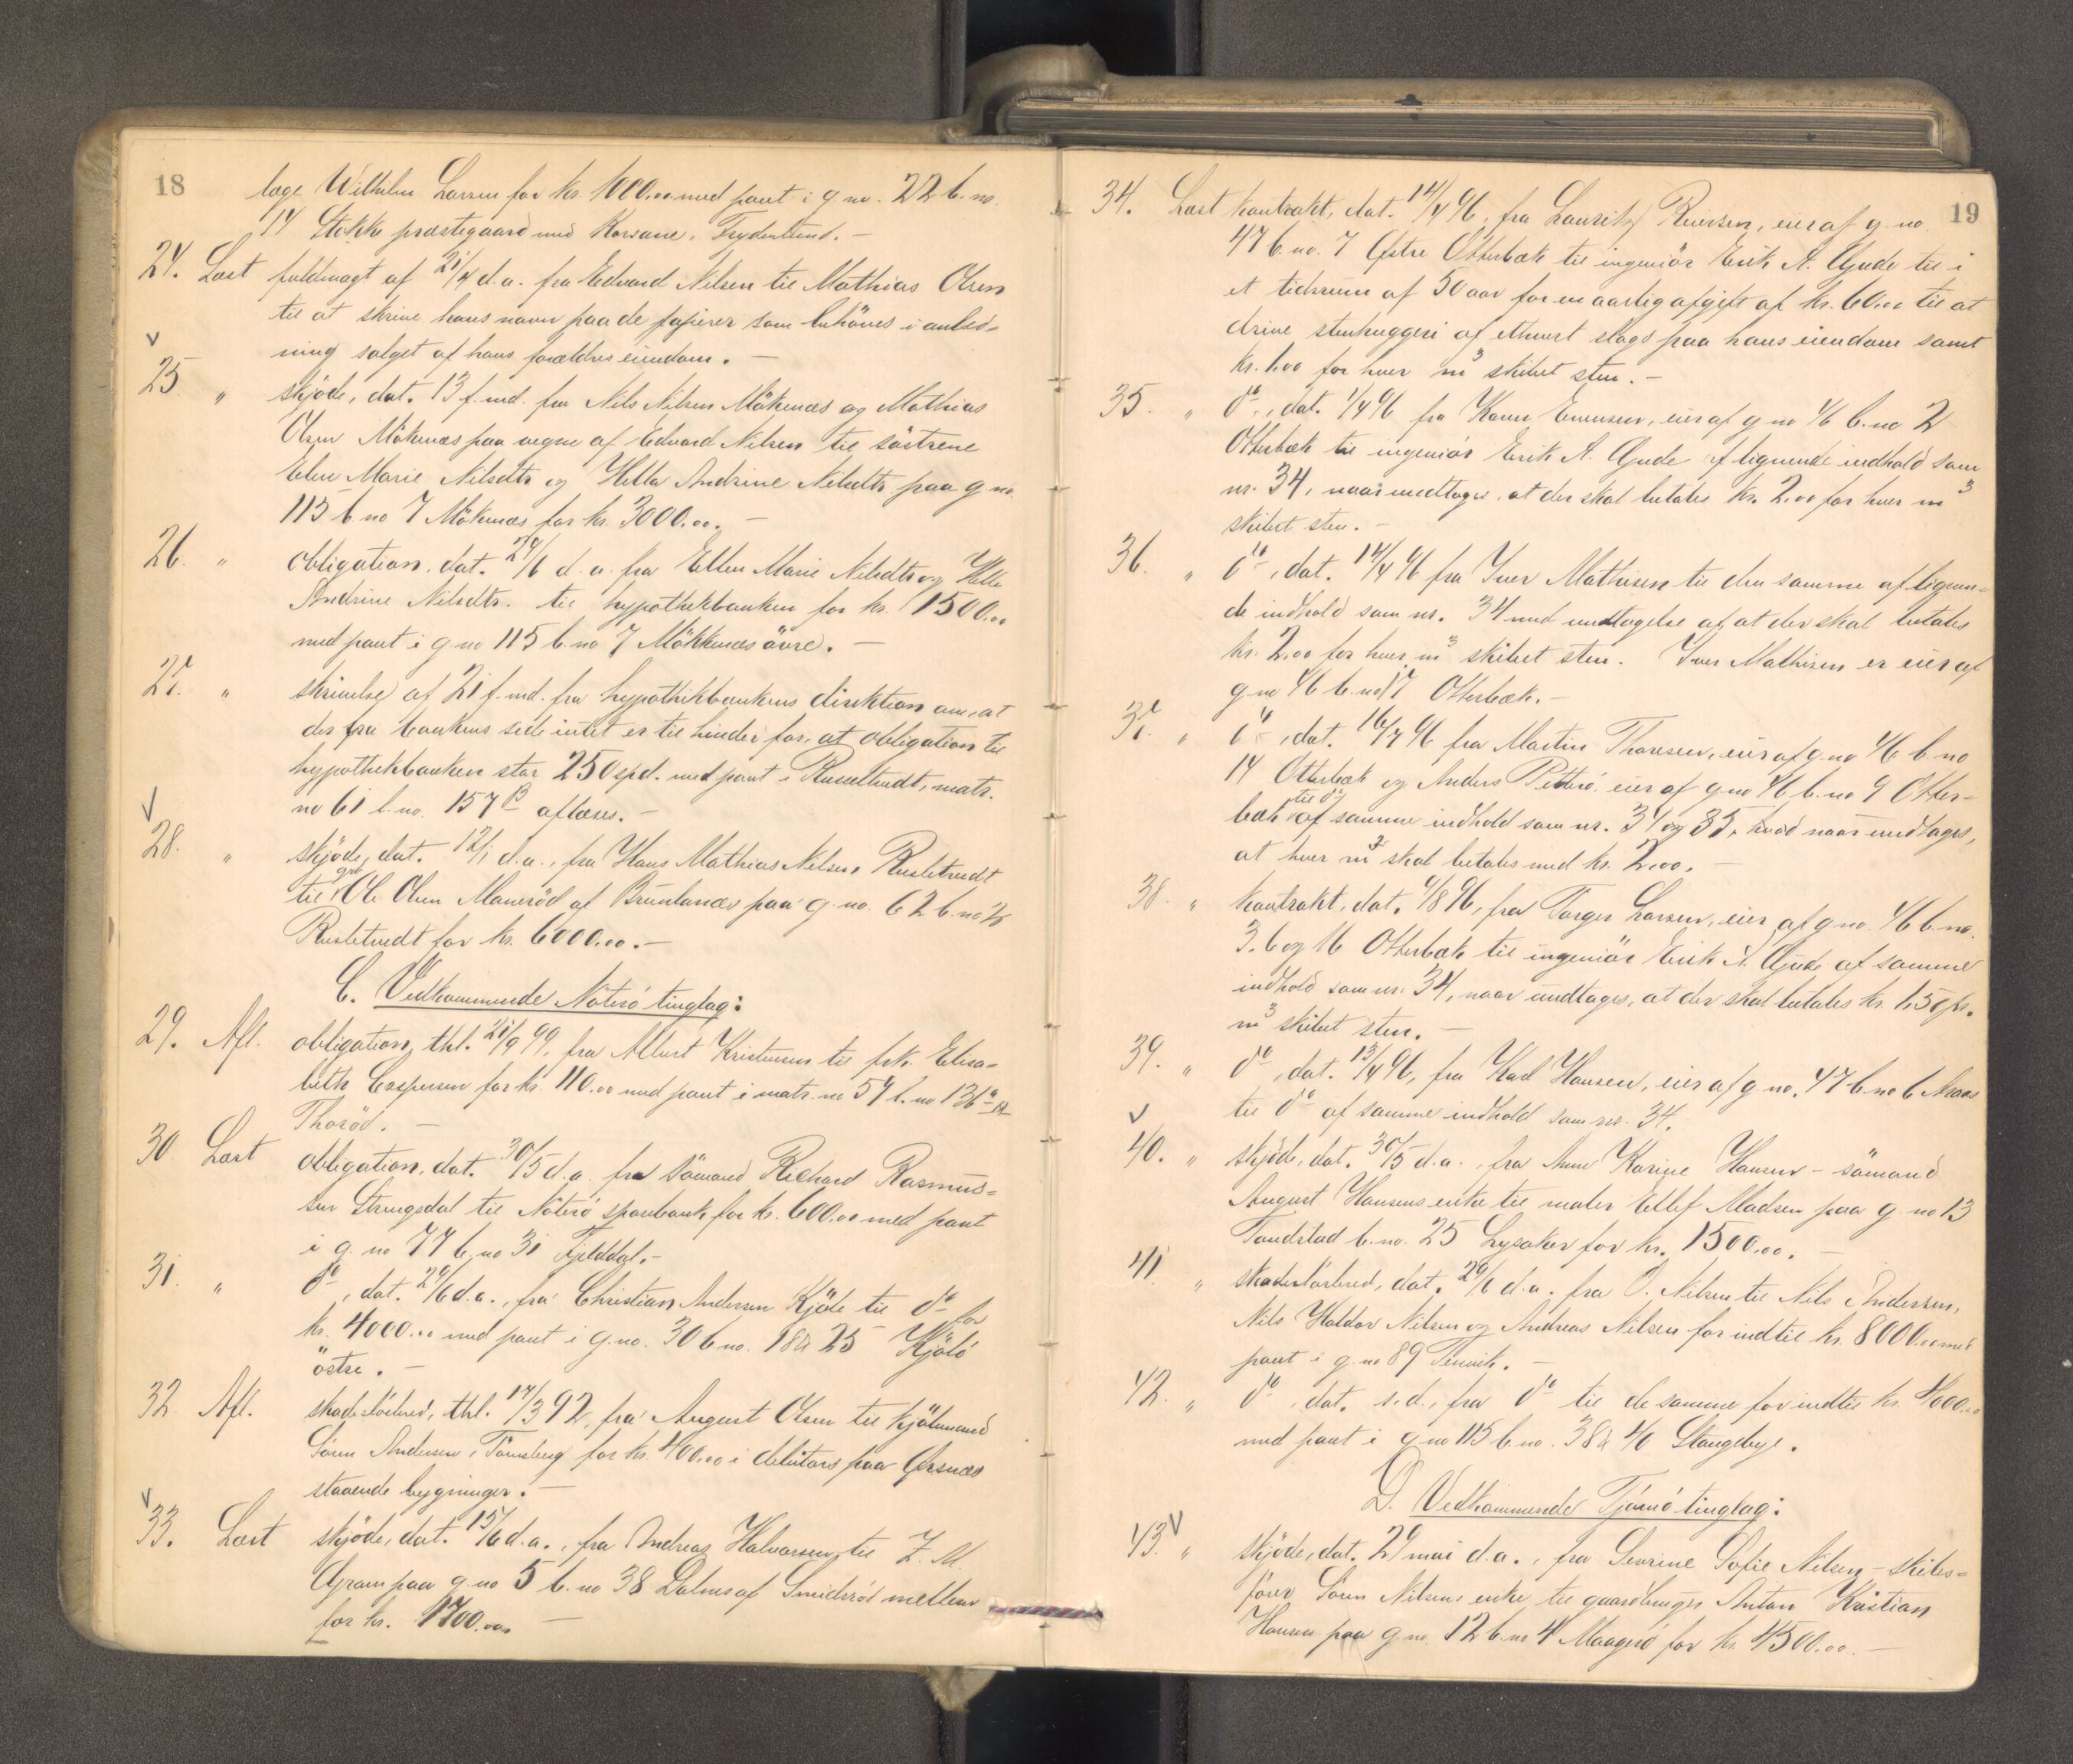 18
lage Wilhelm Larsen for kr. 1000.00 med pant i g. no. 22 b. no.
14 Stokke præstegaard med Korsane, Frydenlund. —
24. Læst fuldmagt af 21/4 d. a. fra Edvard Nilsen til Mathias Olsen
til at skrive hans navn paa de papirer som behöves i anled-
ning salget af hans forældres eiendom. —
25 " skjöde, dat. 13 f. md. fra Nils Nilsen Mökenæs og Mathias
Olsen Mökenæs paa vegne af Edvard Nilsen til söstrene
Elen Marie Nilsdtr og Hella Andrine Nilsdtr paa g. no.
115 b. no 7 Mökenæs for kr. 3000.00. —
26. " obligation, dat. 24/6 d. a. fra Ellen Marie Nilsdtr og Helle
Andrine Nilsdtr. til hypothekbanken for kr. 1500.00
med pant i g. no 115 b. no 7 Mökkenæs övre. —
27. " skrivelse af 21 f. md. fra hypothekbankens direktion om, at
der fra bankens side intet er til hinder for, at obligation til
hypothekbanken stor 250 spd. med pant i Russeltvedt, matr.
no 61 l. no. 157 B aflæses. —
28. " skjöde, dat. 12/1 d. a., fra Hans Mathias Nilsen Rusletvedt
til Ole Olsen Manvröd af Brunlanæs paa g. no. 62 b. no 2
Rusletvedt for kr. 6000.00. —
C. Vedkommende Nöterö tinglag:
29. Afl. obligation, thl. 21/9 99, fra Albert Kristensen til frk. Elisa-
beth Caspersen for kr. 110.00 med pant i matr. no 54 l. no 136
Thoröd. —
30 Læst obligation, dat. 30/5 d. a. fra sömand Richard Rasmus-
sen Strengsdal til Nöterö sparebank for kr. 600.00 med pant
i g. no 77 b. no 31 Fjelddal. —
31. " do, dat. 20/6 d. a., fra Christian Andersen Kjöle til do for
kr. 4000.00 med pant i g. no. 30 b. no. 18 & 25 Kjölö
östre. —
32 Afl. skadeslösbrev, thl. 17/3 92, fra August Olsen til kjöbmand
Sören Andersen, Tönsberg for kr. 400.00 i debitors paa Örsnæs
staaende bygninger. —
33. Læst skjöde, dat. 15/6 d. a., fra Andreas Halvorsen til Z. M.
Gram paa g. no 5 b. no 38 Dalnes af Smidsröd mellem
for kr. 1700.00 —
19
34. Læst kontrakt, dat. 14/4 96, fra Lauritz Reiersen, eier af g. no.
47 b. no. 7 Östre Otterbæk til ingeniör Erik A. Gude til i
et tidsrum af 50 aar for en aarlig afgift af kr. 60.00 til at
drive stenhuggeri af ethvert slags paa hans eiendom samt
kr. 1.00 for hver m3 skibet sten. —
35. " do, dat. 1/4 96 fra Karen Evensen, eier af g. no 46 b. no 2
Otterbæk til ingeniör Erik A. Gude af lignende indhold som
nr. 34, naar undtages, at der skal betales kr. 2.00 for hver m3
skibet sten. —
36. " do, dat. 14/4 96 fra Iver Mathisen til den samme af lignen-
de indhold som nr. 34 med undtagelse af, at der skal betales
kr. 2.00 for hver m3 skibet sten. Iver Mathisen er eier af
g. no 46 b. no 17 Otterbæk. —
37. " do, dat. 16/7 96 fra Martin Thoresen, eier af g. no 46 b. no
14 Otterbæk og Anders Petterö, eier af g. no 46 b. no 9 Otter-
bæk til do af samme indhold som nr. 34 og 35, naar undtages,
at hver m3 skal betales med kr. 2.00. —
38. " kontrakt, dat. 4/8 96, fra Torger Larsen, eier af g. no. 46 b. no.
3. 6 og 16 Otterbæk til ingeniör Erik A. Gude af samme
indhold som nr. 34, naar undtages, at der skal betales kr. 1.50 pr.
m3 skibet sten. —
39. " do, dat. 13/4 96, fra Karl Hansen, eier af g. no. 47 b. no 6
til do af samme indhold som nr. 34.
40. " skjöde, dat. 30/5 d. a., fra Anne Karine Hansen – sömand
August Hansens enke til maler Ellef Madsen paa g. no 13
Tandstad b. no. 25 Lysaker for kr. 1500.00. —
41. " skadeslösbrev, dat. 20/6 d. a. fra O. Nilsen til Nils Andersen,
Nils Haldor Nilsen og Andreas Nilsen for indtil kr. 8000.00 med
pant i g. no 89 Tenvik. —
42. " do, dat. s. d., fra do til de samme for indtil kr. 4000.00
med pant i g. no 115 b. no. 38 & 40 Stangeby.
D. Vedkommende Tjömö tinglag:
43. " skjöde, dat. 29 mai d. a., fra Sevrine Sofie Nilsen – skibs-
förer Sören Nilsens enke til gaardbruger Anton Kristian
Hansen paa g. no. 12 b. no 4 Maagerö for kr. 4500.00. —